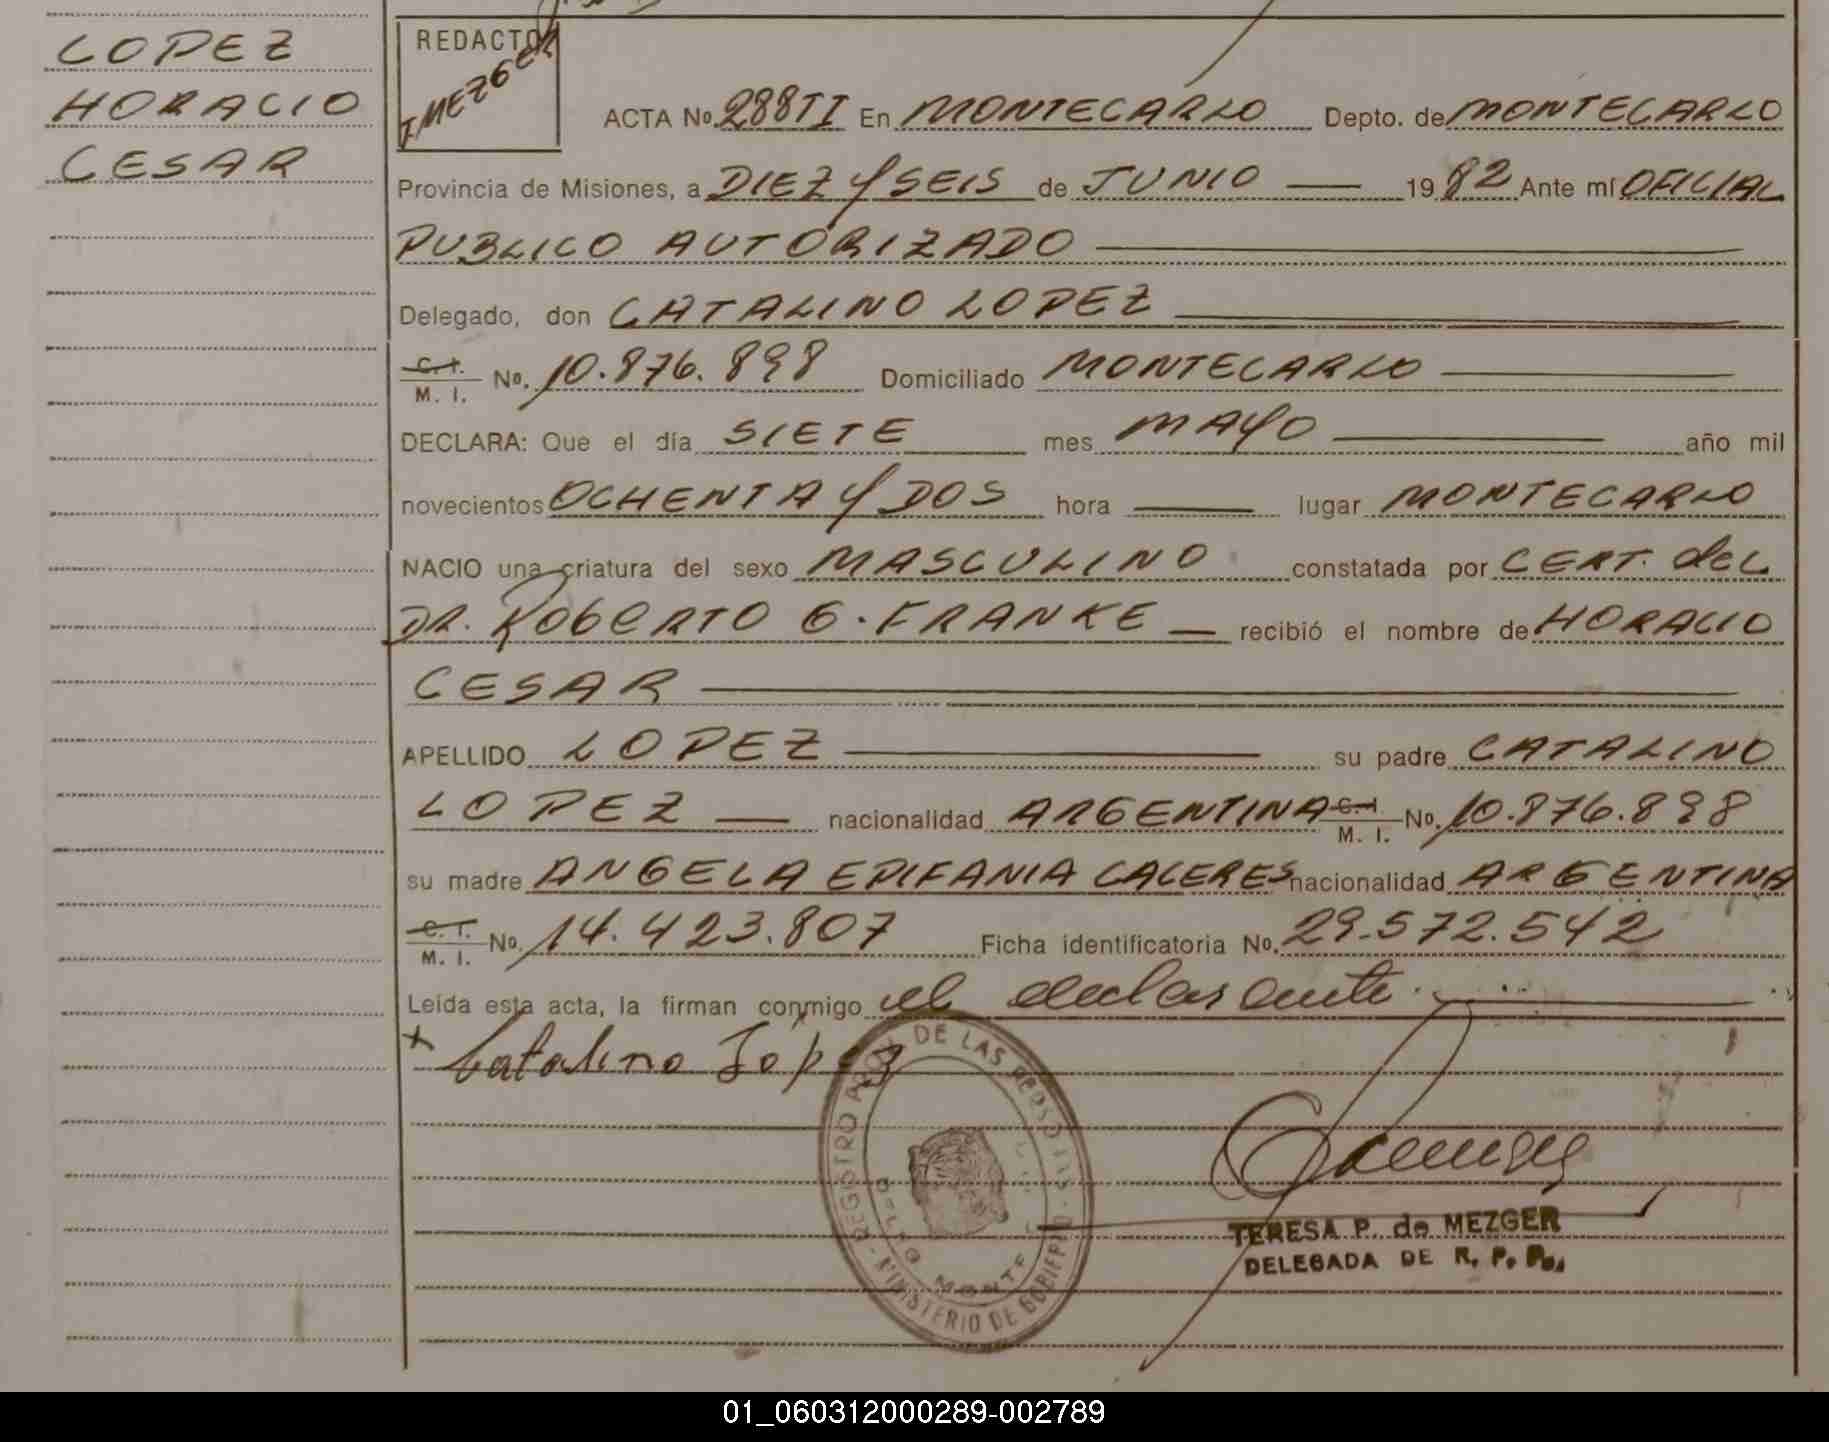 LOPEZ
HORACIO
CESAR
REDACTOR
T MEZGER
ACTA No. 288TI En MONTECARLO Depto. de MONTECARLO
Provincia de Misiones, a DIEZ Y SEIS de JUNIO — 19 82 Ante mí OFICIAL
PUBLICO AUTORIZADO —
Delegado, don CATALINO LOPEZ —
C. I. M. I. No. 10.876.898 Domiciliado MONTECARLO —
DECLARA: Que el día SIETE mes MAYO — año mil
novecientos OCHENTA Y DOS hora — lugar MONTECARLO
NACIO una criatura del sexo MASCULINO constatada por CERT. del
DR. RobERTO G. FRANKE — recibió el nombre de HORACIO
CESAR —
APELLIDO LOPEZ — su padre CATALINO
LOPEZ — nacionalidad ARGENTINA C. I. M. I. No. 10.876.898
su madre ANGELA EPIFANIA CACERES nacionalidad ARGENTINA
C. I. M. I. No. 14.423.807 Ficha identificatoria No. 29.572.542
Leída esta acta, la firman conmigo el declarante. —
x Catalino López
REGISTRO DE LAS PERSONAS - MINISTERIO DE GOBIERNO
TERESA P. de MEZGER
DELEGADA DE R. P. P.
01_060312000289-002789